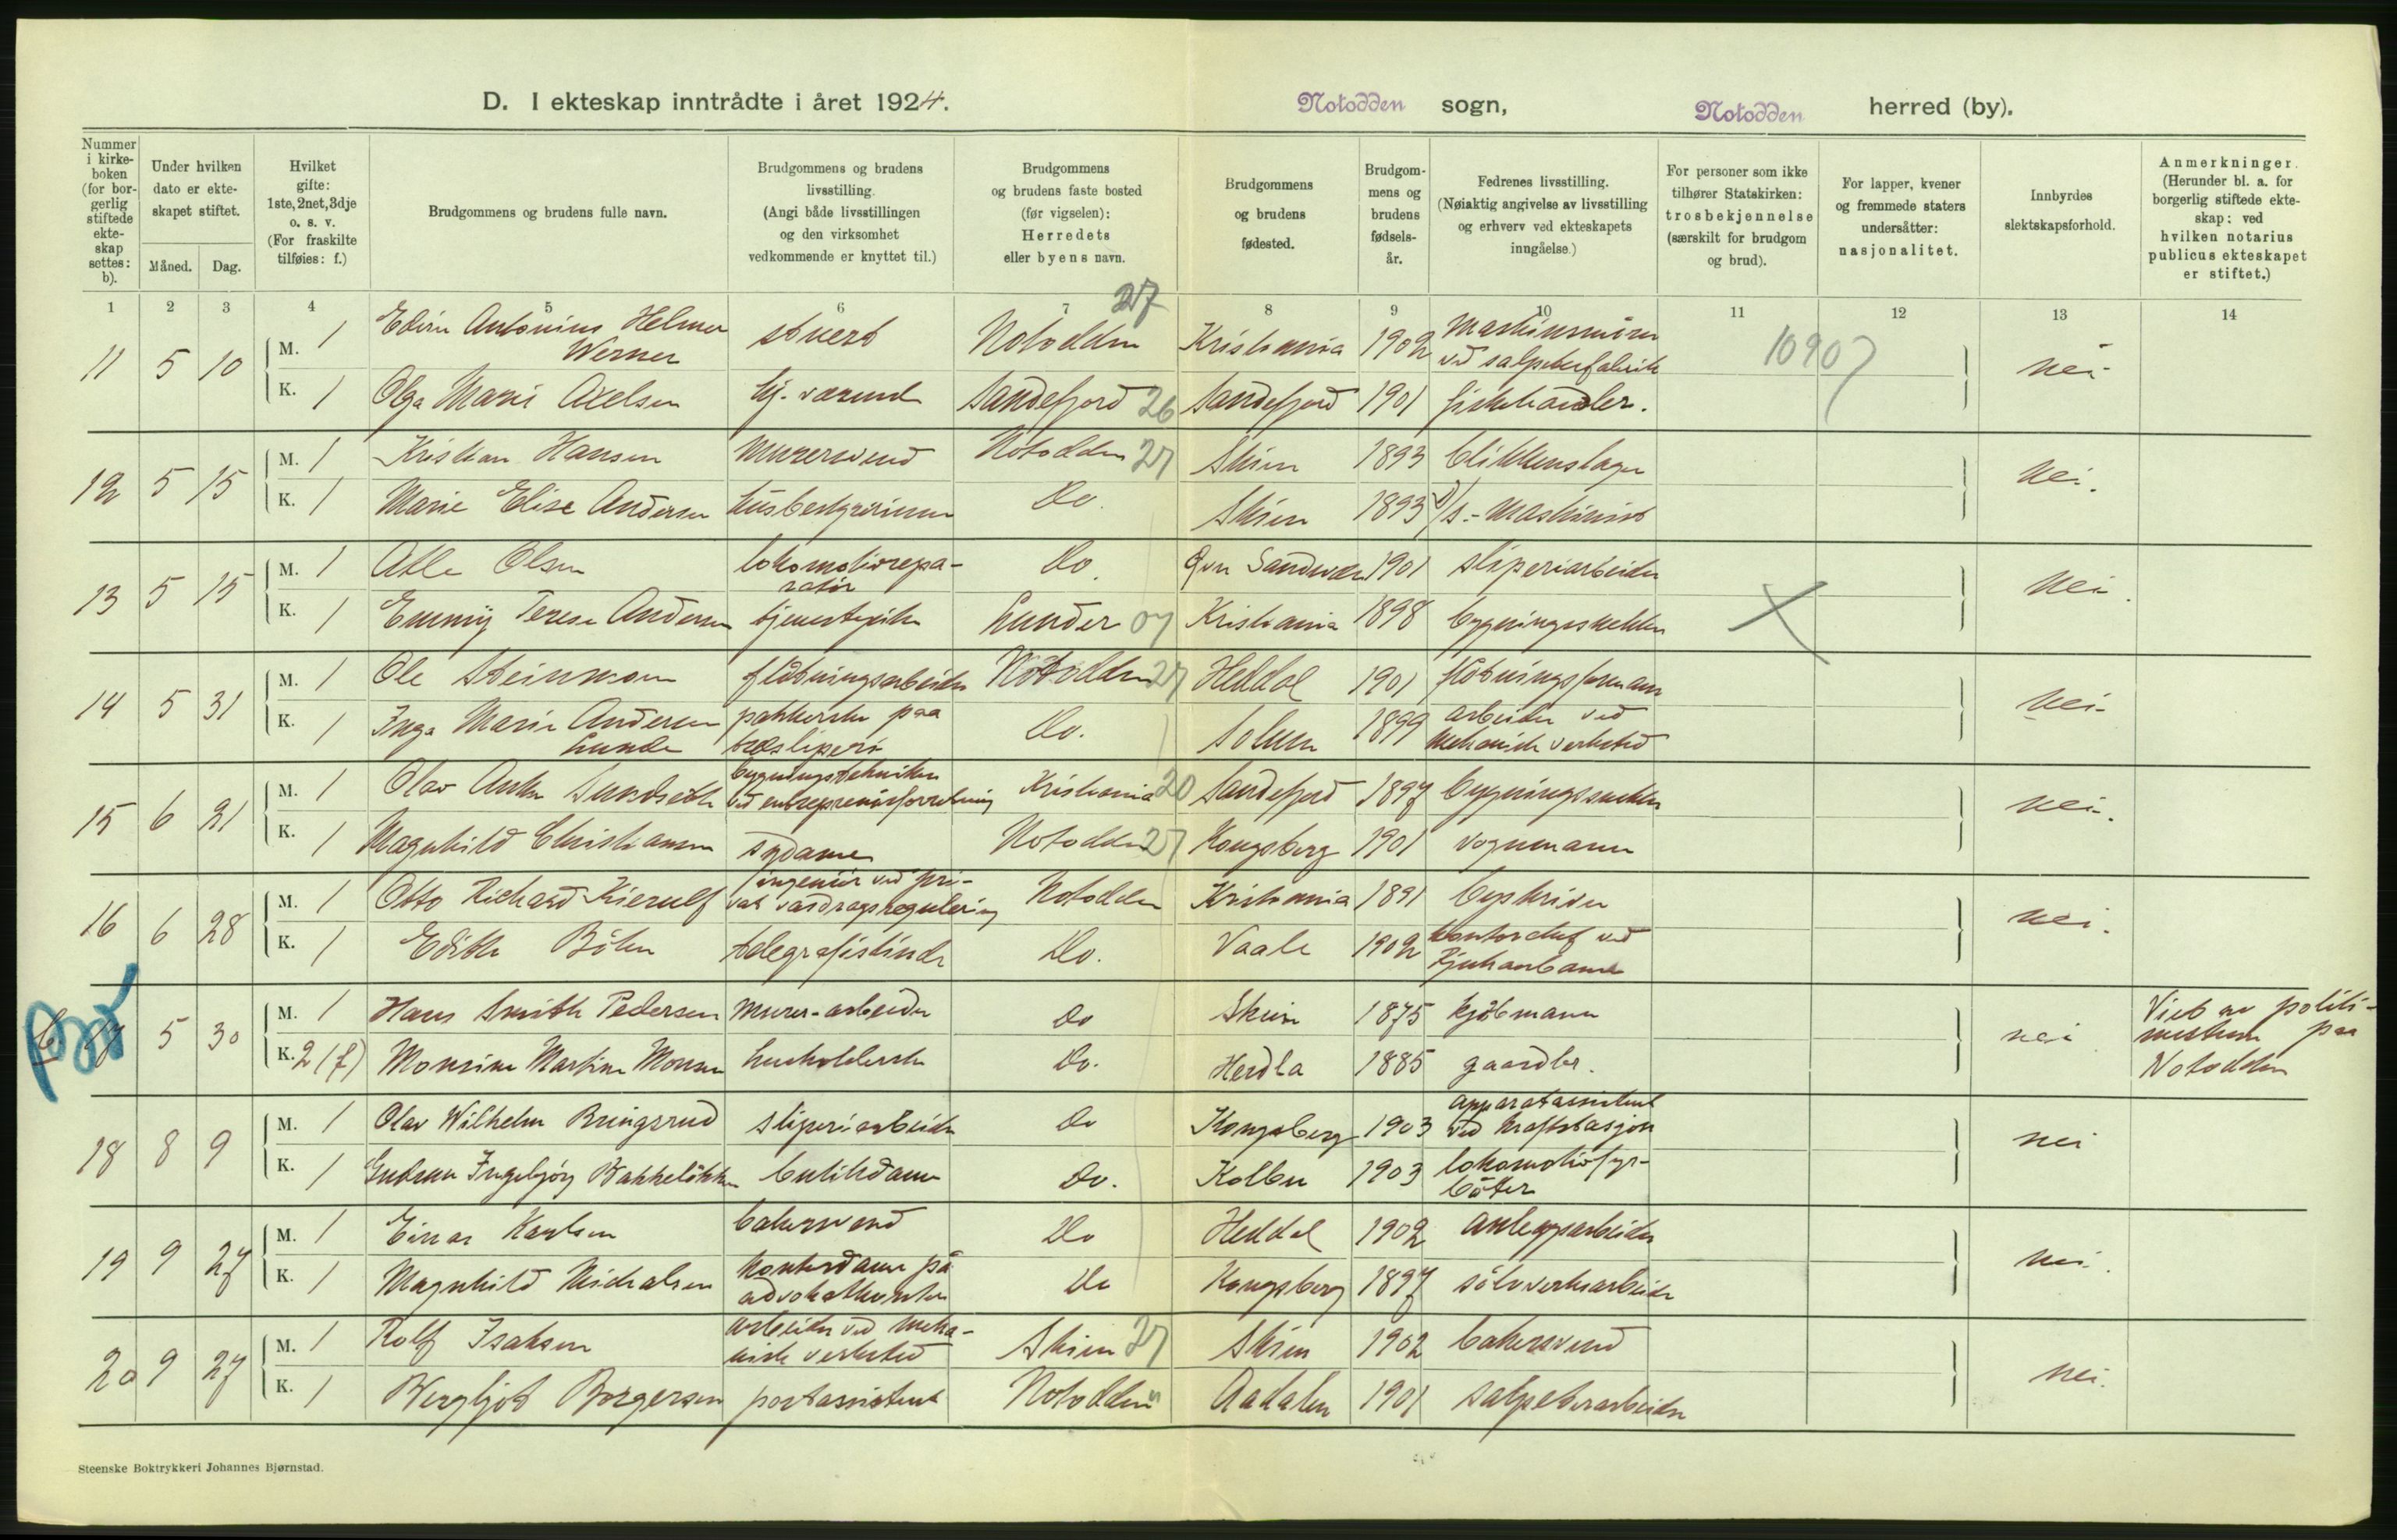 D. I ekteskap inntrådte i året 1924. Notodden sogn, Notodden herred (by).
Nummer i kirke-boken (for bor-gerlig stiftede ekte-skap settes: b).
Under hvilken dato er ekte-skapet stiftet.
Måned. Dag.
Hvilket gifte: 1ste, 2net, 3dje o. s. v. (For fraskilte tilføies: f.)
Brudgommens og brudens fulle navn.
Brudgommens og brudens livsstilling. (Angi både livsstillingen og den virksomhet vedkommende er knyttet til.)
Brudgommens og brudens faste bosted (før vigselen): Herredets eller byens navn.
Brudgommens og brudens fødested.
Brudgom-mens og brudens fødsels-år.
Fedrenes livsstilling. (Nøiaktig angivelse av livsstilling og erhverv ved ekteskapets inngåelse.)
For personer som ikke tilhører Statskirken: trosbekjennelse (særskilt for brudgom og brud).
For lapper, kvener og fremmede staters undersåtter: nasjonalitet.
Innbyrdes slektskapsforhold.
Anmerkninger. (Herunder bl. a. for borgerlig stiftede ekte-skap: ved hvilken notarius publicus ekteskapet er stiftet.)
1 2 3 4 5 6 7 8 9 10 11 12 13 14
27
11 5 10 M. 1 Antonius Helmer Werner stuert Notodden Kristiania 1902 ved salpeterfabrik 10907 nei
K. 1 Olga Marie Axelsen hj. værende Sandefjord 26 Sandefjord 1901 fiskehandler.
12 5 15 M. 1 Kristian Hansen murersvend Notodden 27 Skien 1893 blikkenslager nei.
K. 1 Marie Elise Andersen husbestyrerinne Do. Skien 1893 D/s.-maskinist
13 5 15 M. 1 Atle Olsen lokomotivrepa-ratør Do. Sandsvær 1901 sliperiarbeider nei.
K. 1 Emmy Terese Andersen tjenestepike Lunder 07 Kristiania 1898 bygningssnekker
14 5 31 M. 1 Ole Steinmoen fløtningsarbeider Notodden 27 Heddal 1901 fløtningsformann nei
K. 1 Inga Marie Andersen Lunde pakkerske paa træsliperi Do. Solum 1899 arbeider ved mekanisk verksted
15 6 21 M. 1 Olav Anker bygningstekniker ved entreprenørforretning Kristiania 20 Sandefjord 1897 bygningssnekker nei.
K. 1 Magnhild Christiansen sydame Notodden 27 Kongsberg 1901 vognmann
16 6 28 M. 1 Otto Richard Kierulf ingeniør ved pri-vat vasdragsregulering Notodden Kristiania 1891 byskriver nei.
K. 1 Edith Bøhn telegrafistinde Do. Vaale 1902 kontorchef ved Rjukanbanen
b 17 5 30 M. 1 Hans Smith Pedersen murer-arbeider Do Skien 1875 kjøbmann nei Viet av politi-mesteren paa Notodden
K. 2 (f) Monsine Martine Monsen husholderske Do. Herdla 1885 gaardbr.
18 8 9 M. 1 Olav Wilhelm Bringsrud sliperiarbeider Do Kongsberg 1903 apparatassistent ved kraftstasjon nei
K. 1 Gudrun Ingebjørg Bakkeløkken butikdame Do. Kolbu 1903 lokomotivfyr-bøter
19 9 27 M. 1 Einar Karlsen bakersvend Do Heddal 1902 anleggsarbeider nei.
K. 1 Magnhild Michalsen kontordame på advokatkontor Do Kongsberg 1897 sølvverksarbeider
20 9 27 M. 1 Rolf Isaksen arbeider ved meka-nisk verksted Skien 27 Skien 1902 bakersvend nei.
K. 1 Bergljot Borgersen postassistent Notodden Aadalen 1901 salpeterarbeider
Steenske Boktrykkeri Johannes Bjørnstad.